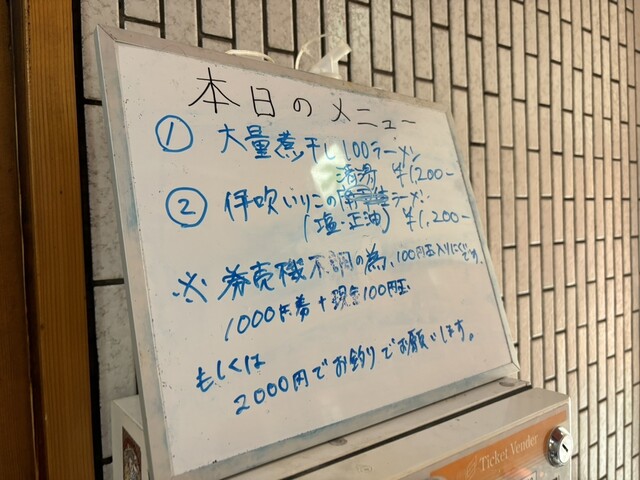 本日のメニュー
① 大量煮干し100ラーメン
清湯 ¥1,200-
② 伊吹いりこのラーメン
(塩・正油) ¥1,200-
※ 券売機不調の為、100円玉入りにくです。
1000円券+現金100円玉
もしくは
2000円でお釣りでお願いします。
Ticket Vender